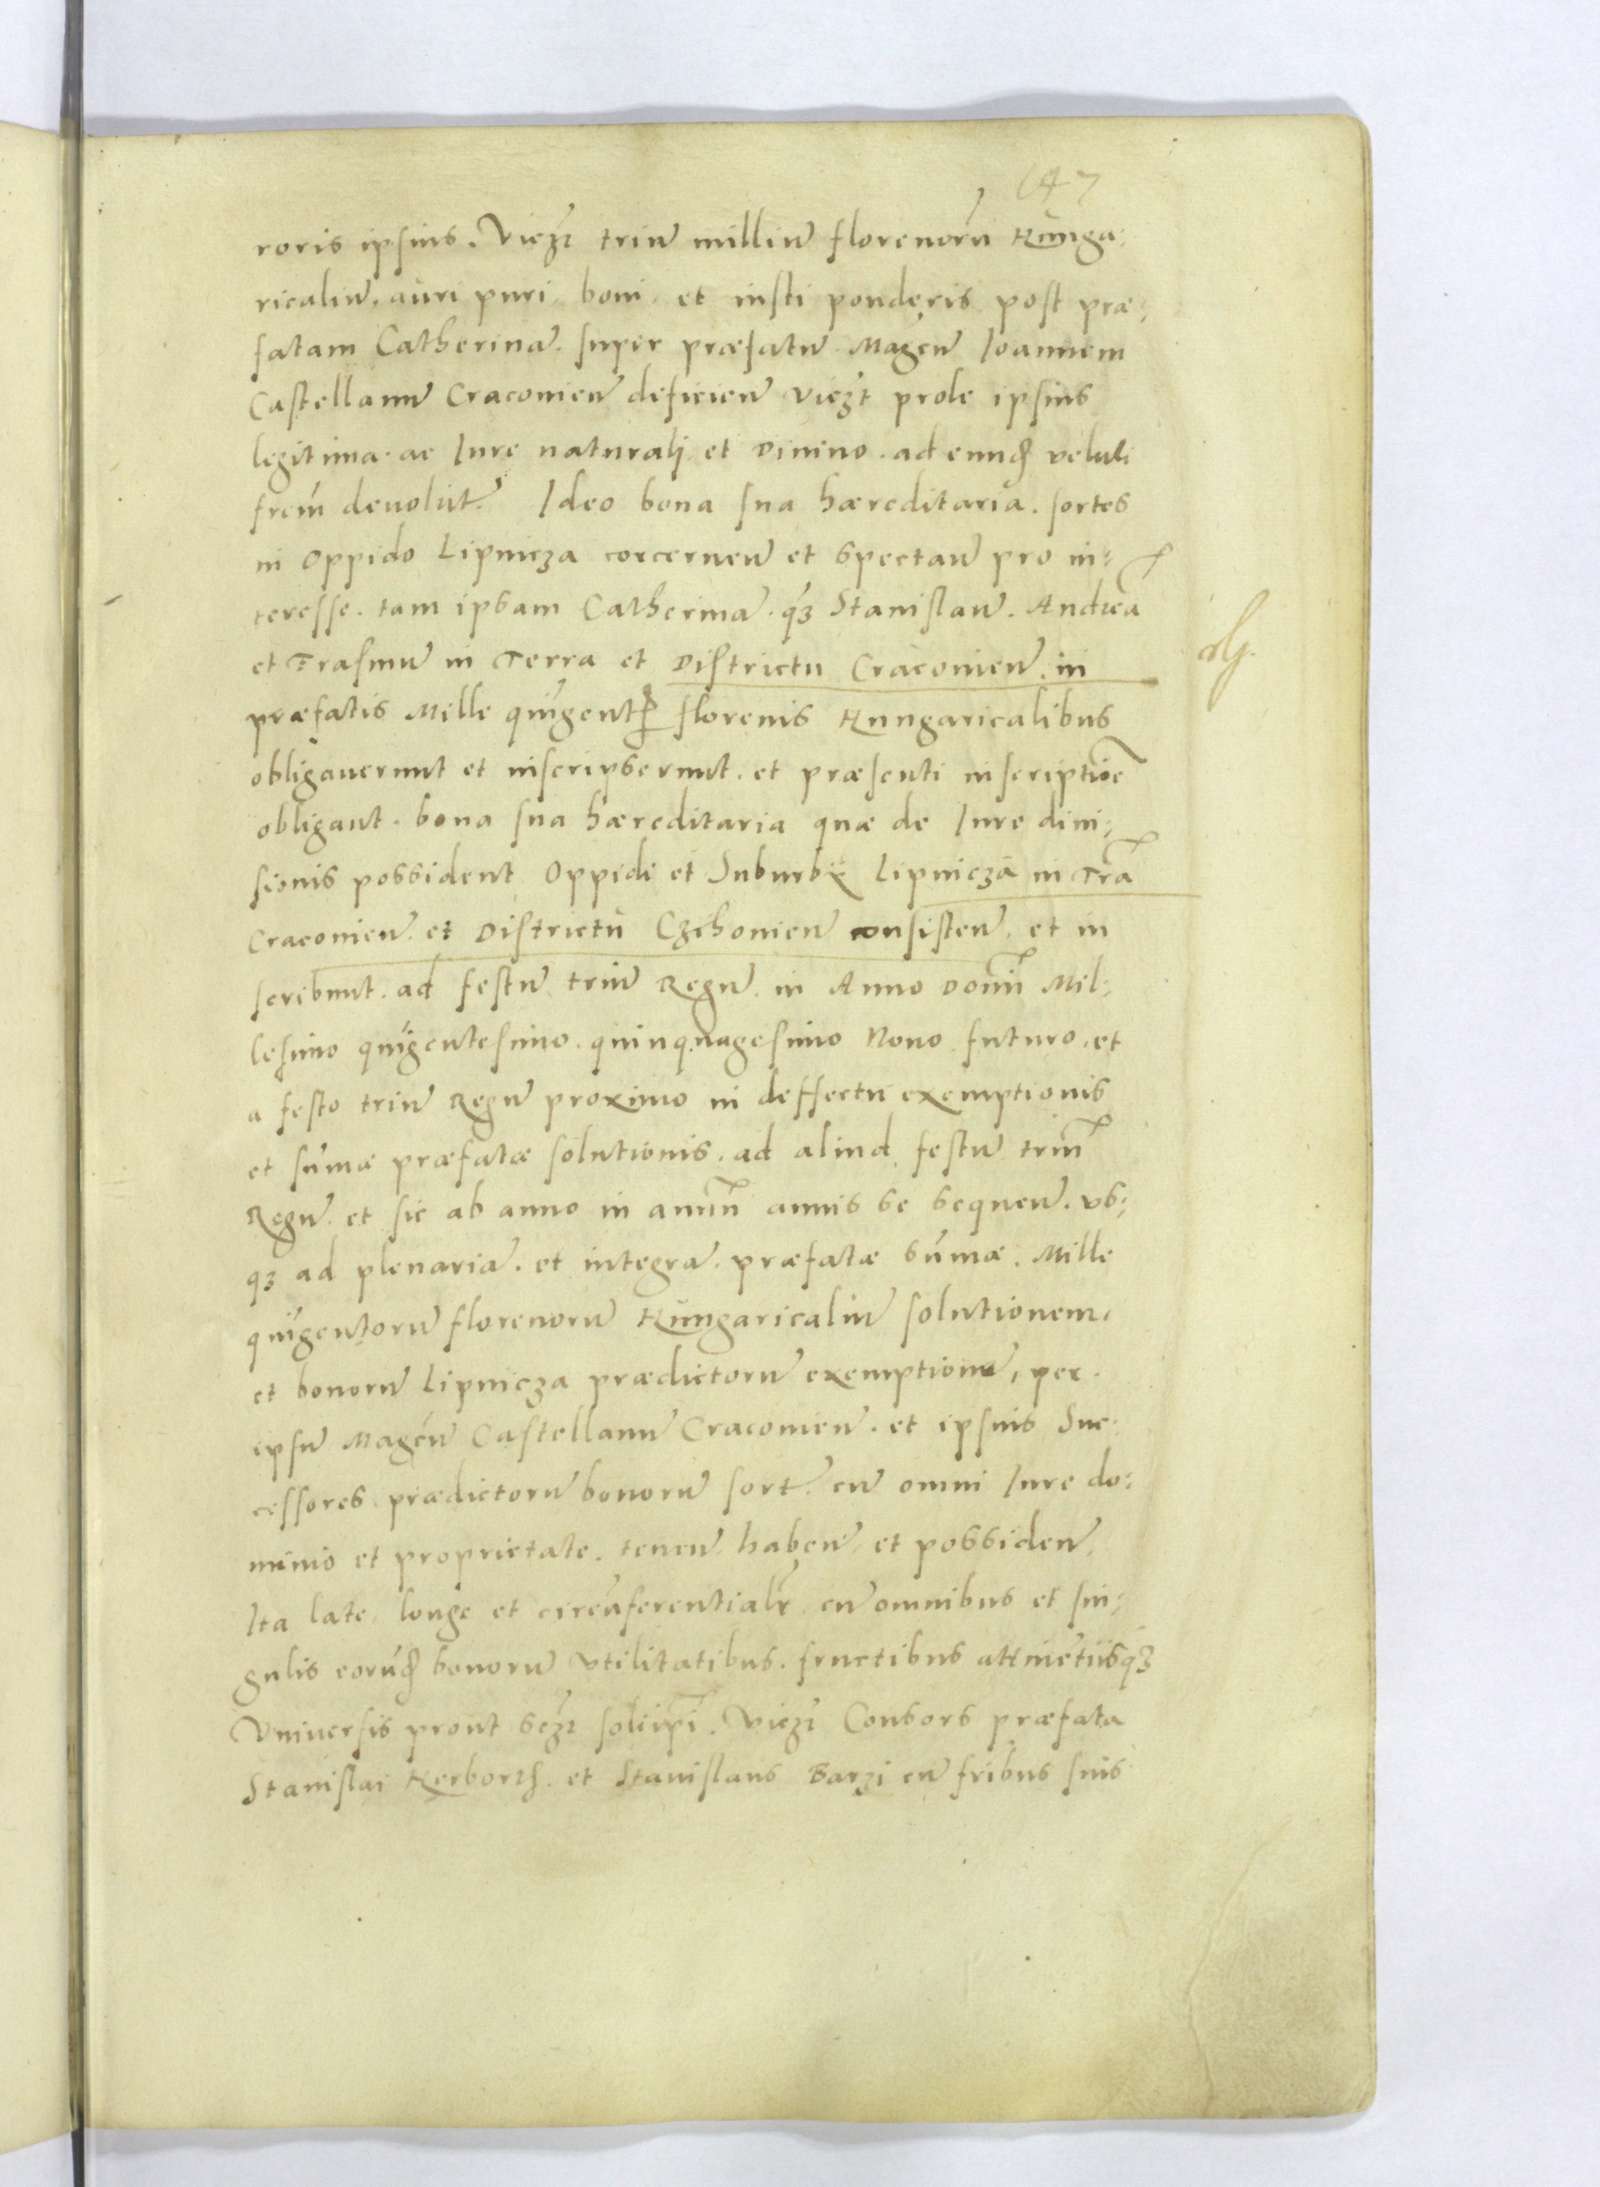 147
roris ipsius. Viczt triũ milliũ florenorũ Hunga-
ricaliũ, auri puri boni et iusti ponderis post præ-
fatam Catherinã. super præfatũ Magcũ Ioannem
Castellanũ Cracouieñ deficieñ viczt prole ipsius
legitima. ac Iure naturali et Diuino. ad eundẽ veluti
frem̃ deuolut. Ideo bona sua hæreditaria. sortes
in Oppido Lipnicza cocerneñ et spectañ pro in-
teresse. tam ipsam Catherinã. qz Stanislaũ. Andreã
et Erasmũ in Terra et Districtu Cracouieñ. in
præfatis Mille quĩgent flor̃enis Hungaricalibus
obligauerunt et inscripserunt. et præsenti inscriptioẽ
obligant. bona sua hæreditaria quæ de Iure diui-
sionis possident Oppidi et Suburbii Lipniczã in Tr̃a
Cracouieñ. et Districtu Czchouieñ consisteñ. et in
scribunt. ad festũ triũ Regũ. in Anno Domĩ Mil-
lesimo quĩgentesimo. quinquagesimo Nono futuro. et
a festo triũ Regũ proximo in deffectu exemptionis
et sum̃æ præfatæ solutionis. ad aliud festũ triũ
Regũ. et sic ab anno in annũ annis se sequeñ. vs-
qz ad plenariã. et integrã. præfatæ sum̃æ. Mille
quĩgentorũ florenorũ Hungaricaliũ solutionem.
et bonorũ Lipnicza prædictorũ exemptionẽ, per
ipsũ Magcũ Castellanũ Cracouieñ. et ipsius Suc-
cessores prædictorũ bonorũ sort. cũ omni Iure do-
minio et proprietate. teneñ habeñ et possideñ.
Ita late longe et circũferentialr̃ cũ omnibus et sin-
gulis eorũdẽ bonorũ vtilitatibus. fructibus attinẽtiisqz
Vniuersis prout sczt soli ipĩ. Viczt Consors præfata
Stanislai Herborth. et Stanislaus Barzi cũ frĩbus suis